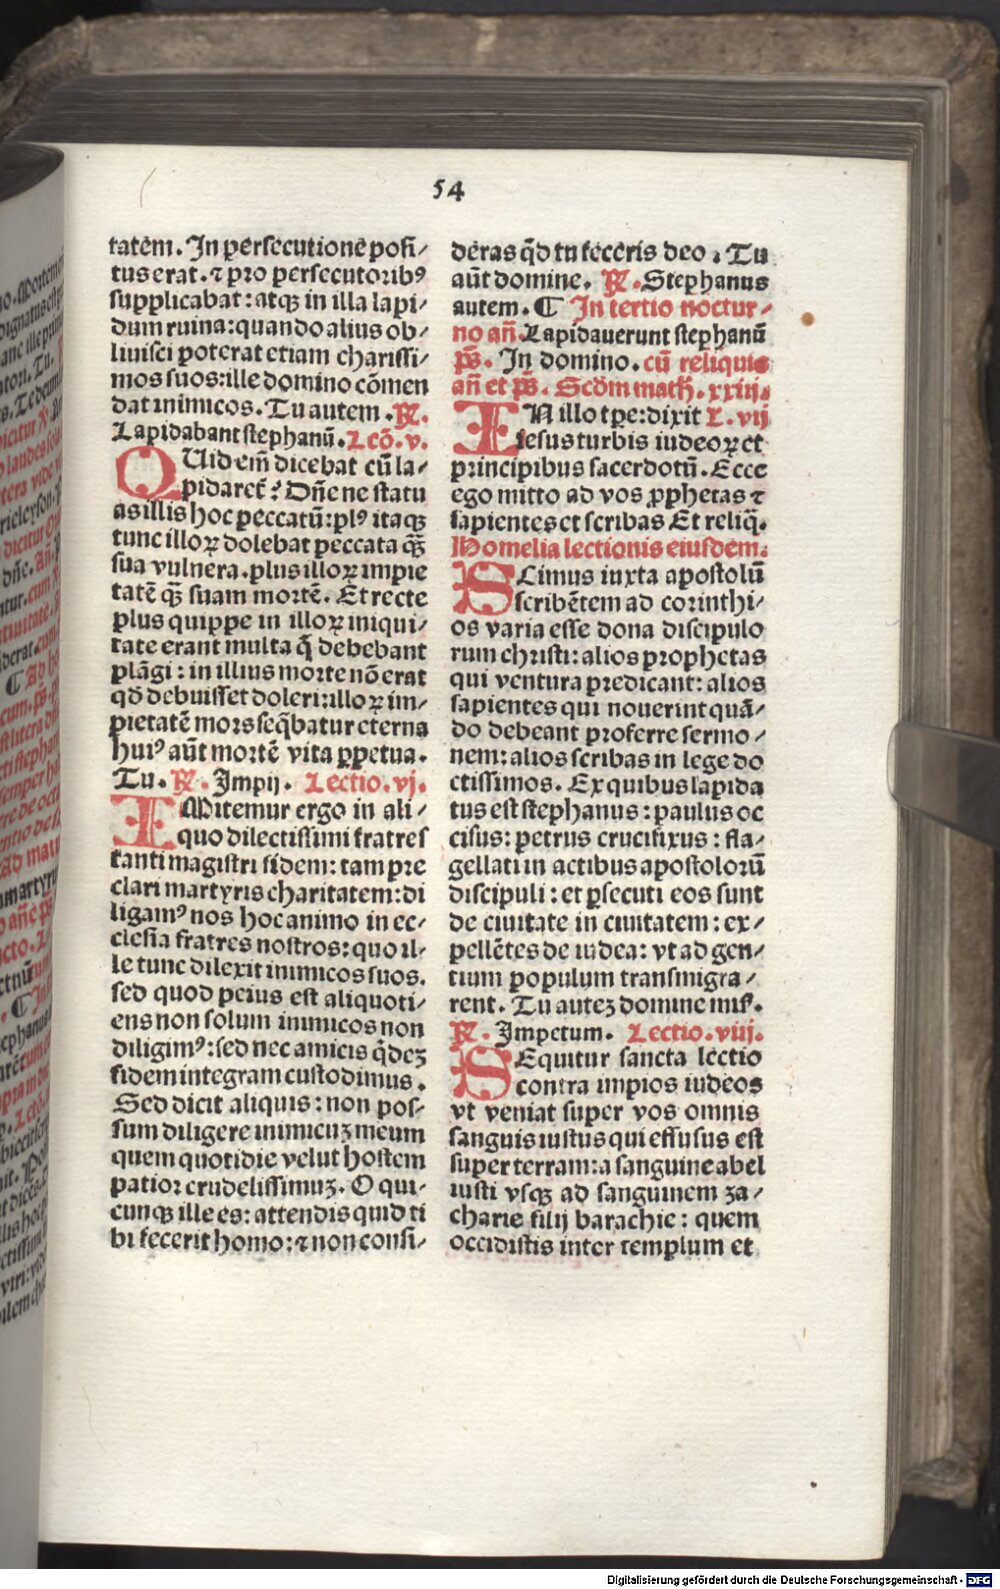 54
tatem. In persecutione posi/
tus erat. ⁊ pro persecutoribꝰ
supplicabat: atqꝫ in illa lapi/
dum ruina: quando alius ob/
liuisci poterat etiam charissi/
mos suos: ille domino cōmen
dat inimicos. Tu autem. ℟.
Lapidabant stephanū. Lcō. v.
QUid em̄ dicebat cū la/
pidaret̄? Dn̄e ne statu
as illis hoc peccatū: plꝰ itaqꝫ
tunc illoꝝ dolebat peccata qꝫ̄
sua vulnera. plus illoꝝ impie
tatē qꝫ̄ suam mortē. Et recte
plus quippe in illoꝝ iniqui/
tate erant multa q̄ debebant
plāgi: in illius morte nō erat
qd̄ debuisset doleri: illoꝝ im/
pietatē mors seq̄batur eterna
huiꝰ aūt mortē vita ꝑpetua.
Tu. ℟. Impij. Lectio. vj.
IMitemur ergo in ali/
quo dilectissimi fratres
tanti magistri fidem: tam pre
clari martyris charitatem: di
ligamꝰ nos hoc animo in ec/
clesia fratres nostros: quo il/
le tunc dilexit inimicos suos.
sed quod peius est aliquoti/
ens non solum inimicos non
diligimꝰ: sed nec amicis q̇deꝫ
fidem integram custodimus.
Sed dicit aliquis: non pos/
sum diligere inimicuꝫ meum
quem quotidie velut hostem
patior crudelissimuꝫ. O qui/
cunqꝫ ille es: attendis quid ti
bi fecerit homo: ⁊ non consi/
deras qd̄ tu feceris deo. Tu
aūt domine. ℟. Stephanus
autem. ¶ In tertio noctur/
no an̄. Lapidauerunt stephanū
ps̄. In domino. cū reliquis
an̄ et ps̄. Scd̄m math. xxiij.
IN illo tꝑe: dixit L. vij
iesus turbis iudeoꝝ et
principibus sacerdotū. Ecce
ego mitto ad vos ꝓphetas ⁊
sapientes et scribas Et reliq̄.
Homelia lectionis eiusdem.
SCimus iuxta apostolū
scribētem ad corinthi/
os varia esse dona discipulo
rum christi: alios prophetas
qui ventura predicant: alios
sapientes qui nouerint quā/
do debeant proferre sermo/
nem: alios scribas in lege do
ctissimos. Ex quibus lapida
tus est stephanus: paulus oc
cisus: petrus crucifixus: fla/
gellati in actibus apostolorū
discipuli: et ꝑsecuti eos sunt
de ciuitate in ciuitatem: ex/
pellētes de iudea: vt ad gen/
tium populum transmigra/
rent. Tu auteꝫ domine mis̄.
℟. Impetum. Lectio. viij.
SEquitur sancta lectio
contra impios iudeos
vt veniat super vos omnis
sanguis iustus qui effusus est
super terram: a sanguine abel
iusti vsqꝫ ad sanguinem za/
charie filij barachie: quem
occidistis inter templum et
Digitalisierung gefördert durch die Deutsche Forschungsgemeinschaft - DFG